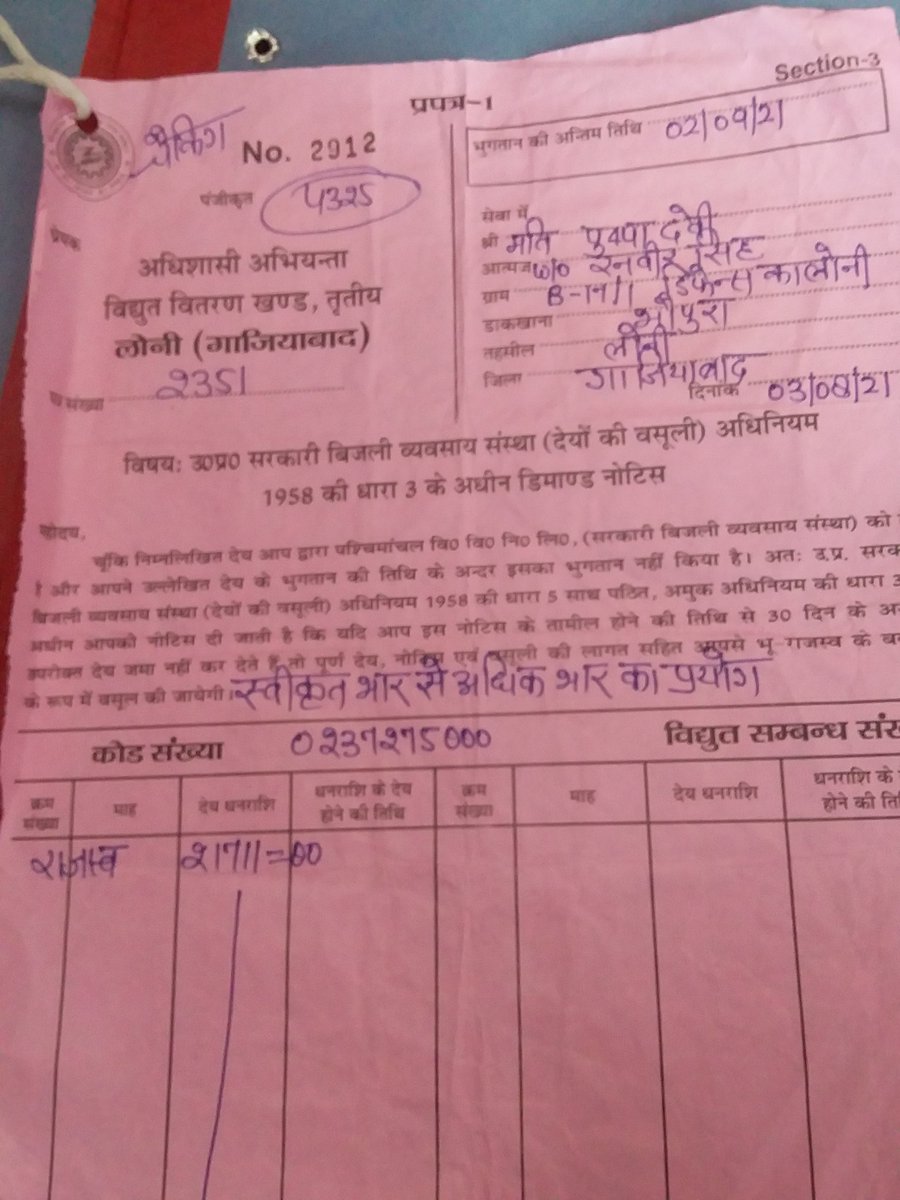 Section-3
प्रपत्र-1
चैकिंग
No. 2912
भुगतान की अन्तिम तिथि 02/09/21
पंजीकृत 4325
प्रेषक
अधिशासी अभियन्ता
विद्युत वितरण खण्ड, तृतीय
लोनी (गाजियाबाद)
संख्या 2351
सेवा में
श्री मति पुष्पा देवी
आत्मज W/O रनवीर सिंह
ग्राम B-14/1 डिफेन्स कालोनी
डाकखाना भोपुरा
तहसील लोनी
जिला गाजियाबाद
दिनांक 03/08/21
विषय: उ0प्र0 सरकारी बिजली व्यवसाय संस्था (देयों की वसूली) अधिनियम
1958 की धारा 3 के अधीन डिमाण्ड नोटिस
महोदय,
चूंकि निम्नलिखित देय आप द्वारा पश्चिमांचल वि0 वि0 नि0 लि0, (सरकारी बिजली व्यवसाय संस्था) को
है और आपने उल्लेखित देय के भुगतान की तिथि के अन्दर इसका भुगतान नहीं किया है। अतः उ.प्र.
बिजली व्यवसाय संस्था (देयों की वसूली) अधिनियम 1958 की धारा 5 साथ पठित, अमुक अधिनियम की धारा 3
अधीन आपको नोटिस दी जाती है कि यदि आप इस नोटिस के तामील होने की तिथि से 30 दिन के
उपरोक्त देय जमा नहीं कर देते हैं तो पूर्ण देय, नोटिस एवं वसूली की लागत सहित आपसे भू-राजस्व के
के रूप में वसूल की जायेगी। स्वीकृत भार से अधिक भार का प्रयोग
कोड संख्या 0237275000 विद्युत सम्बन्ध
क्रम संख्या माह देय धनराशि धनराशि के देय होने की तिथि क्रम संख्या माह देय धनराशि धनराशि के होने की
राजस्व 21711=00